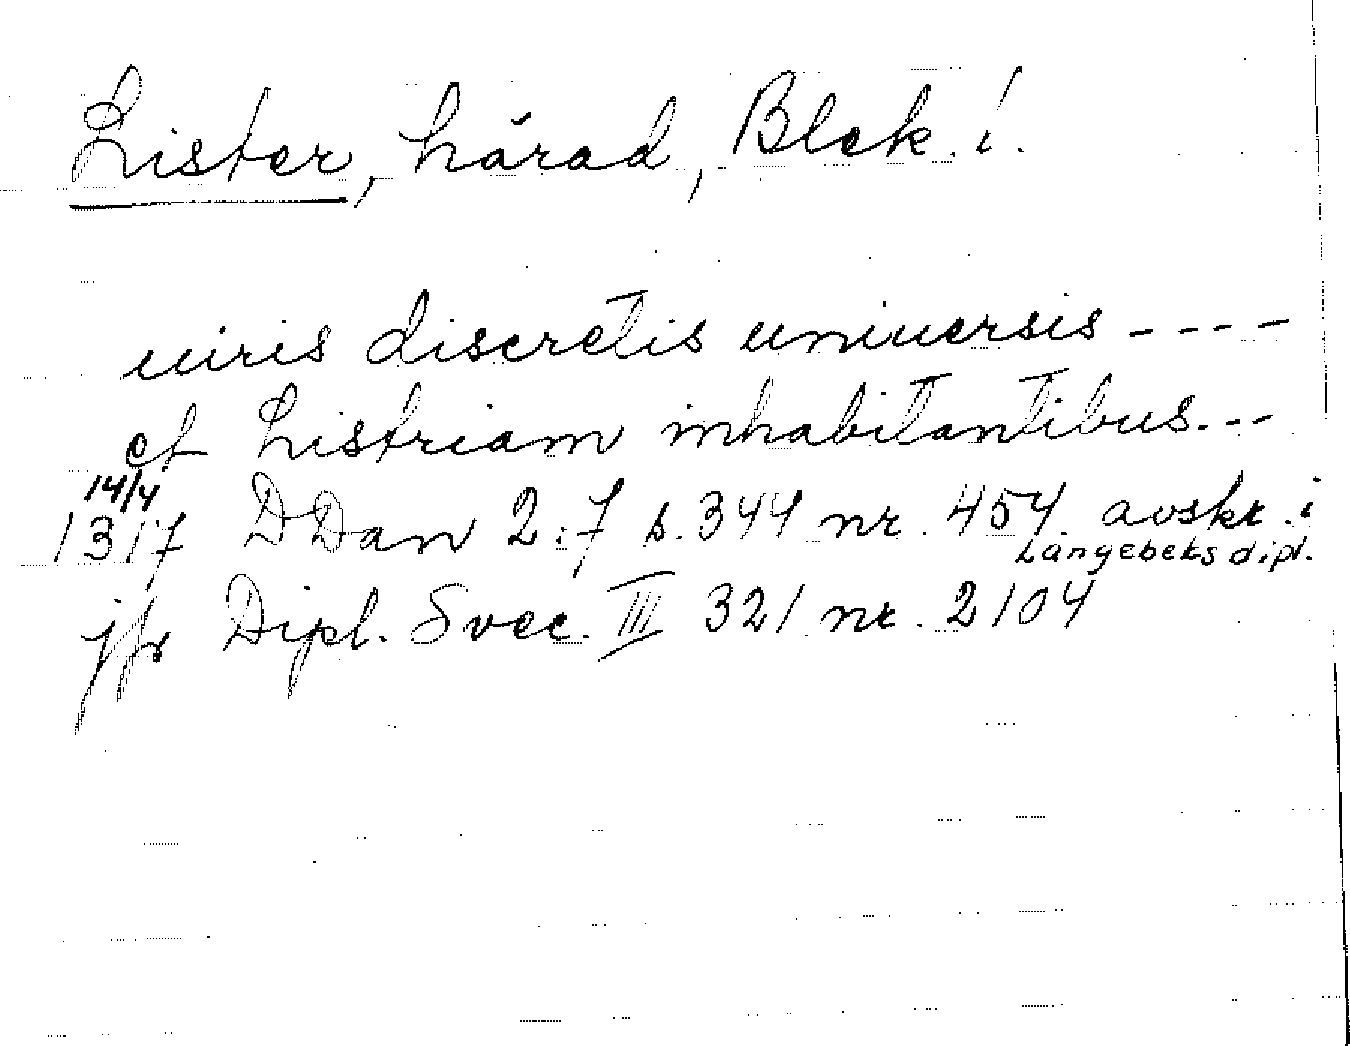 Lister, härad, Blek. l.
uiris discretis uniuersis ----
et Listriam inhabitantibus...
14/4
1317 DDan 2:7 s. 344 nr. 454 avskr. i
Langebeks dipl.
jfr Dipl. Svec. III 321 nr. 2104